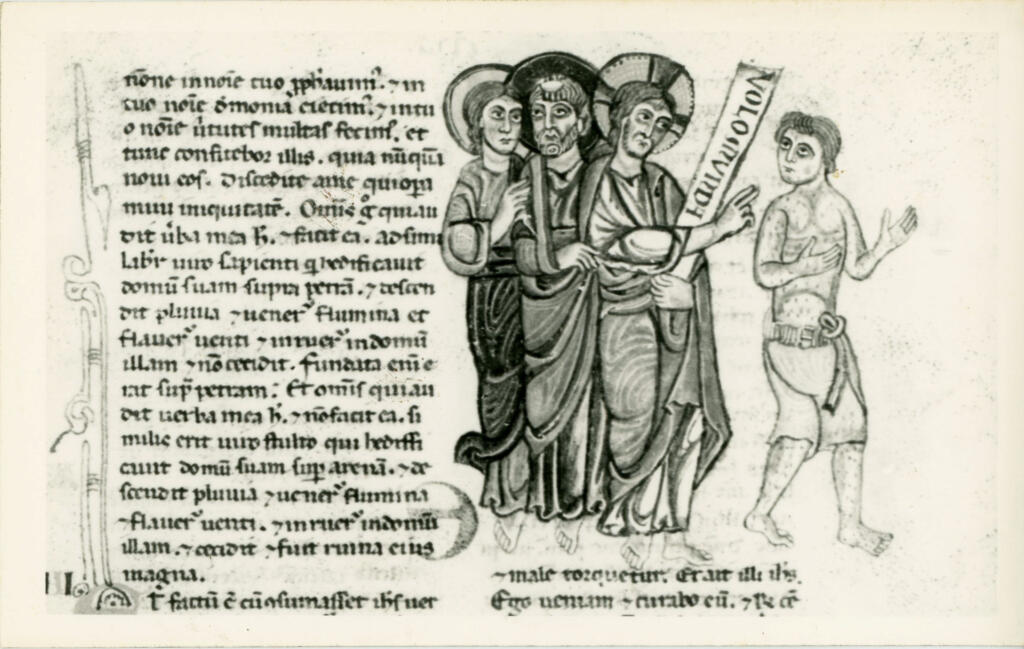 nōne in noīe tuo ꝓph̄auim᷒. ⁊ in
tuo noīe dēmonia eiecim᷒. ⁊ in tu
o noīe ūtutes multas fecim᷒. et
tunc confitebor illis. quia nūquā
noui eos. Discedite a me qui oꝑa
mini iniquitatē. Omīs g̊ qui au
dit ūba mea h̄. ⁊ facit ea. adsimi
labit᷒ uiro sapienti q̇ hedificauit
domū suam supra petrā. ⁊ descen
dit pluuia ⁊ uener̄ flumina et
flauer̄ uenti ⁊ inruer̄ in domū
illam ⁊ nō cecidit. fundata enī e
rat suꝑ petram. Et omīs qui au
dit uerba mea h̄. ⁊ nō facit ea. si
milis erit uiro stulto qui hediffi
cauit domū suam suꝑ arenā. ⁊ de
scendit pluuia ⁊ uener̄ flumina
⁊ flauer̄ uenti. ⁊ inruer̄ in domū
illam. ⁊ cecidit ⁊ fuit ruina eius
magna.
factū ē cū ɔsumasset ihs̄ uer
VOLO MVND
⁊ male torquetur. Et ait illi ihs̄.
Ego ueniam ⁊ curabo eū. ⁊